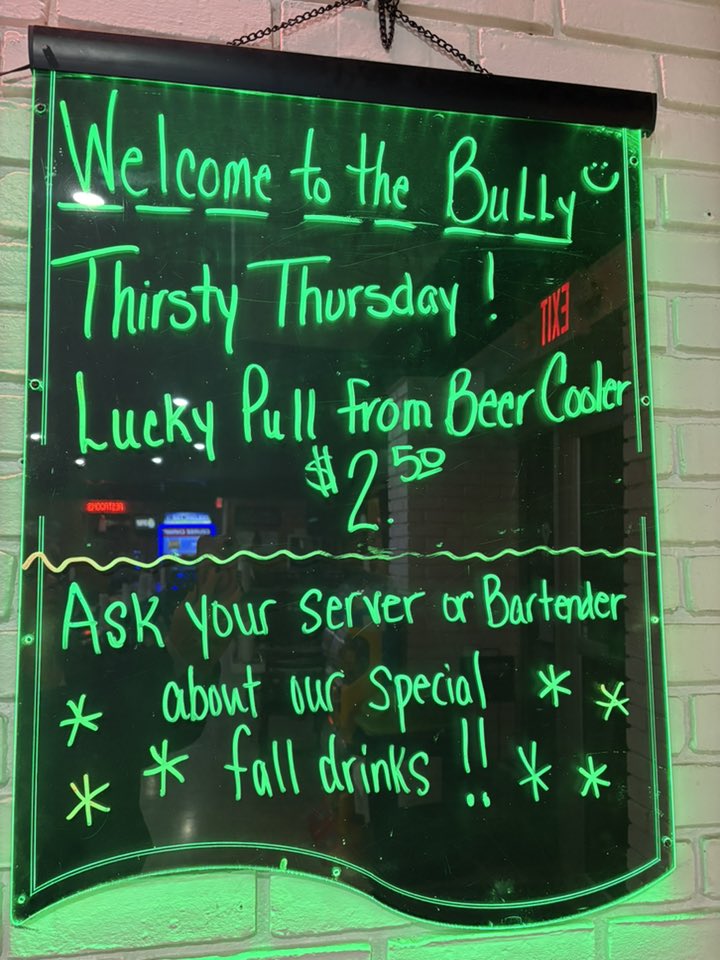 Welcome to the Bully
Thirsty Thursday!
EXIT
Lucky Pull from Beer Cooler
$2.50
Ask your server or Bartender
about our special
fall drinks!!